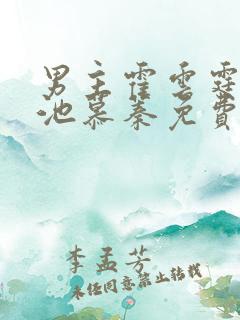 男主霍云霆
池慕秦免费
李孟芳
未经同意禁止转载